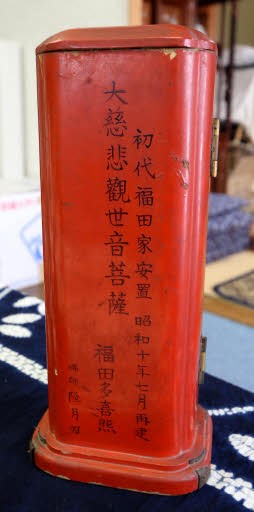 初代福田家安置 昭和十年七月再建
大慈悲觀世音菩薩
福田多喜熙